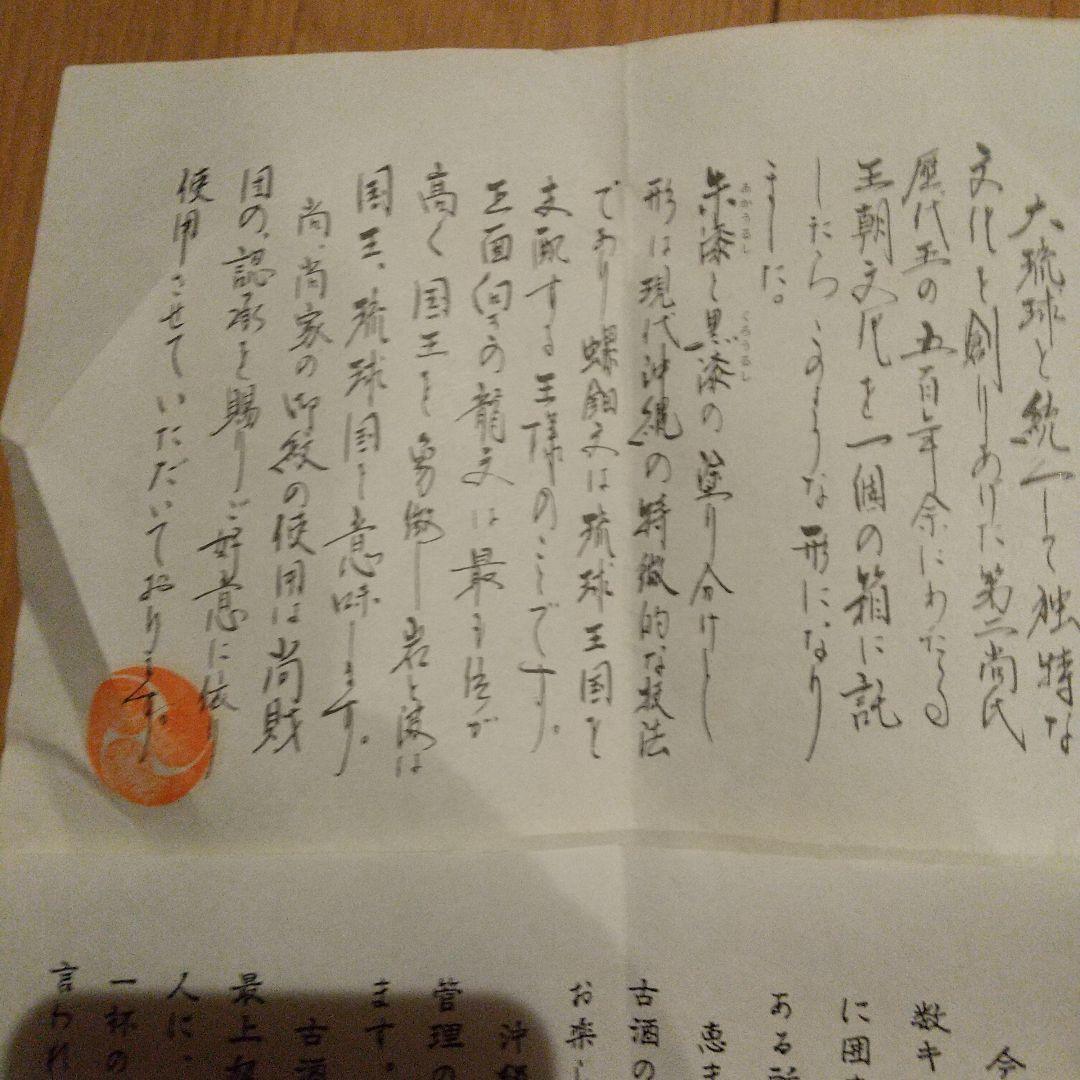 大琉球を統一して独特な
文化を創りあげた第二尚氏
歴代王の五百年余にわたる
王朝文化を一個の箱に託
したらこのような形になり
ました。
朱漆と黒漆の塗り分けし
あかうるし
くろうるし
形は現代沖縄の特徴的な技法
であり螺鈿文は琉球王国を
支配する王様のことです。
正面向きの龍文は最も位が
高く国王を象徴し岩と波は
国王、琉球国を意味します。
尚、尚家の御紋の使用は尚財
団の、認承を賜りご好意に依り
使用させていただいております。
令
数キ
に囲
ある
恵ま
古酒の
お楽し
沖縄
管理の
ます。
古酒
最上
人に、
一杯の
言われ